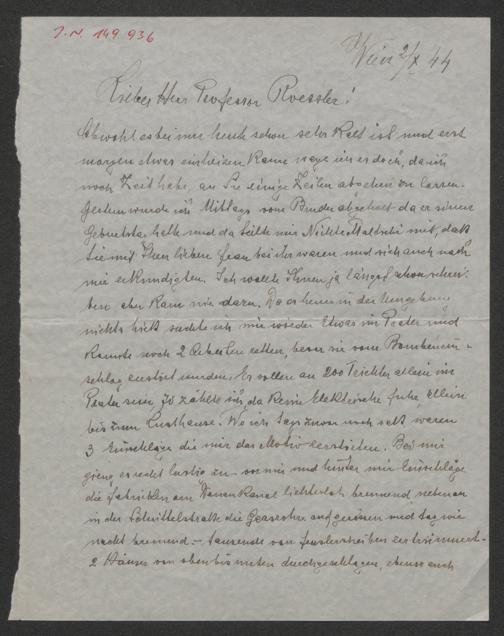 J.N. 149.936
Wien 2/X 44
Lieber Herr Professor Roessler!
Obwohl es bei mir heute schon sehr kalt ist und erst
morgen etwas einheizen kann wage ich es doch, da ich
noch Zeit habe, an Sie einige Zeilen abgehen zu lassen.
Gestern wurde ich Mittags vom Bruder abgeholt da er seinen
Geburtstag hatte und da teilte mir Nichte mit, daß
Sie mit Ihrer lieben Frau bei ihr waren und sich auch nach
mir erkundigten. Ich wollte Ihnen ja längst schon schrei-
ben aber kam nie dazu. Da es heuer in der Umgebung
nichts hielt suchte ich mir wieder Etwas im Prater und
konnte noch 2 Arbeiten retten, bevor sie vom Bombenein-
schlag zerstört wurden. Es sollen an 200 Trichter allein im
Prater sein, 70 zählte ich, da keine Elektrische fuhr, allein
bis zum Lusthause. Wo ich tags zuvor noch saß waren
3 Einschläge die mir das Motiv zerstörten. Bei mir
gieng es recht lustig zu – vor mir und hinter mir Einschläge
die Fabriken am Donaukanal lichterloh brennend, nebenan
in der Schüttelstraße die Gasrohre aufgerissen und tag wie
nacht brennend – tausende von Fensterscheiben zertrümmert –
2 Häuser von oben bis unten durchgeschlagen, ebenso auch